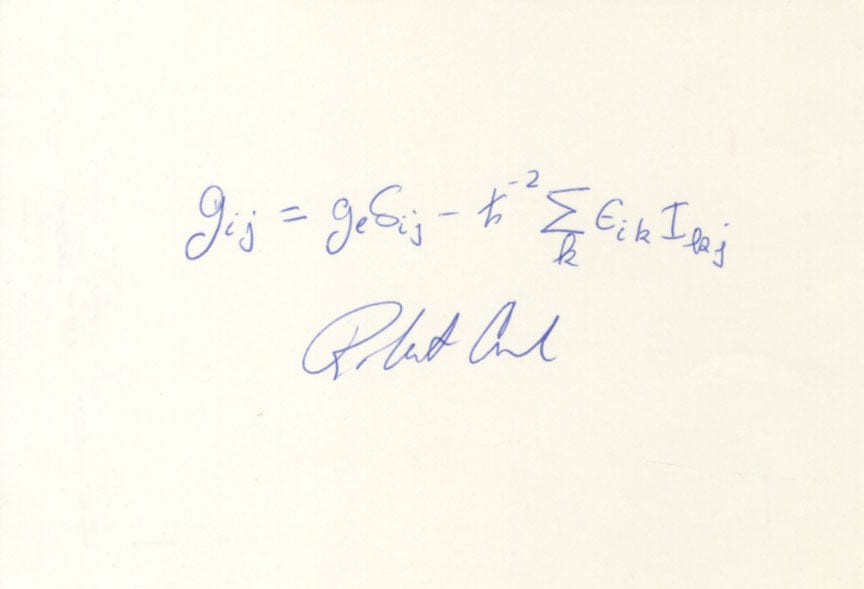 gij = geδij - ħ⁻² Σk ϵik Ikj
Robert Curl